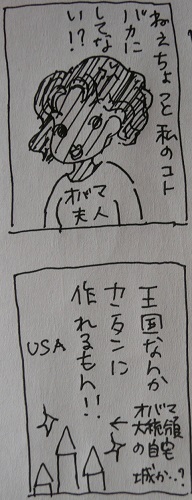 ねえちょっと私のコト
バカに
してな
い!?
オバマ
夫人
王国なんか
カンタンに
作れるもん!!
USA
←オバマ
大統領
の自宅
城か..?